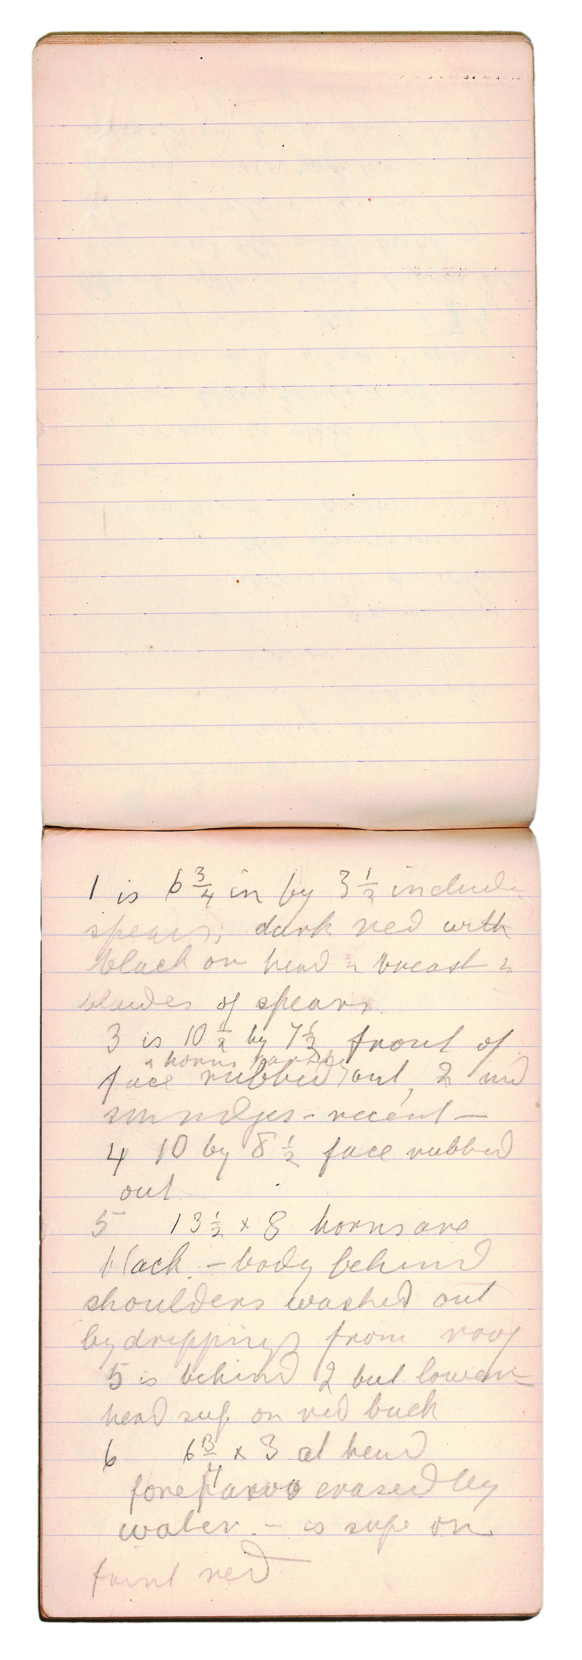 1 is 6 3/4 in by 3 1/2 includi
spears, dark red with
black on head & breast &
blades of spears.
3 is 10 1/2 by 7 1/2 front of
& horns
face rubbed out, 2 red
recent —
4 10 by 8 1/2 face rubbed
out
5 13 1/2 x 8 horns are
black. — body behind
shoulders washed out
by drippings from roof
5 is behind 2 but lower —
head sup on red back
6 6 3/4 x 3 at head
fore erased by
water. — is supe on
faint red